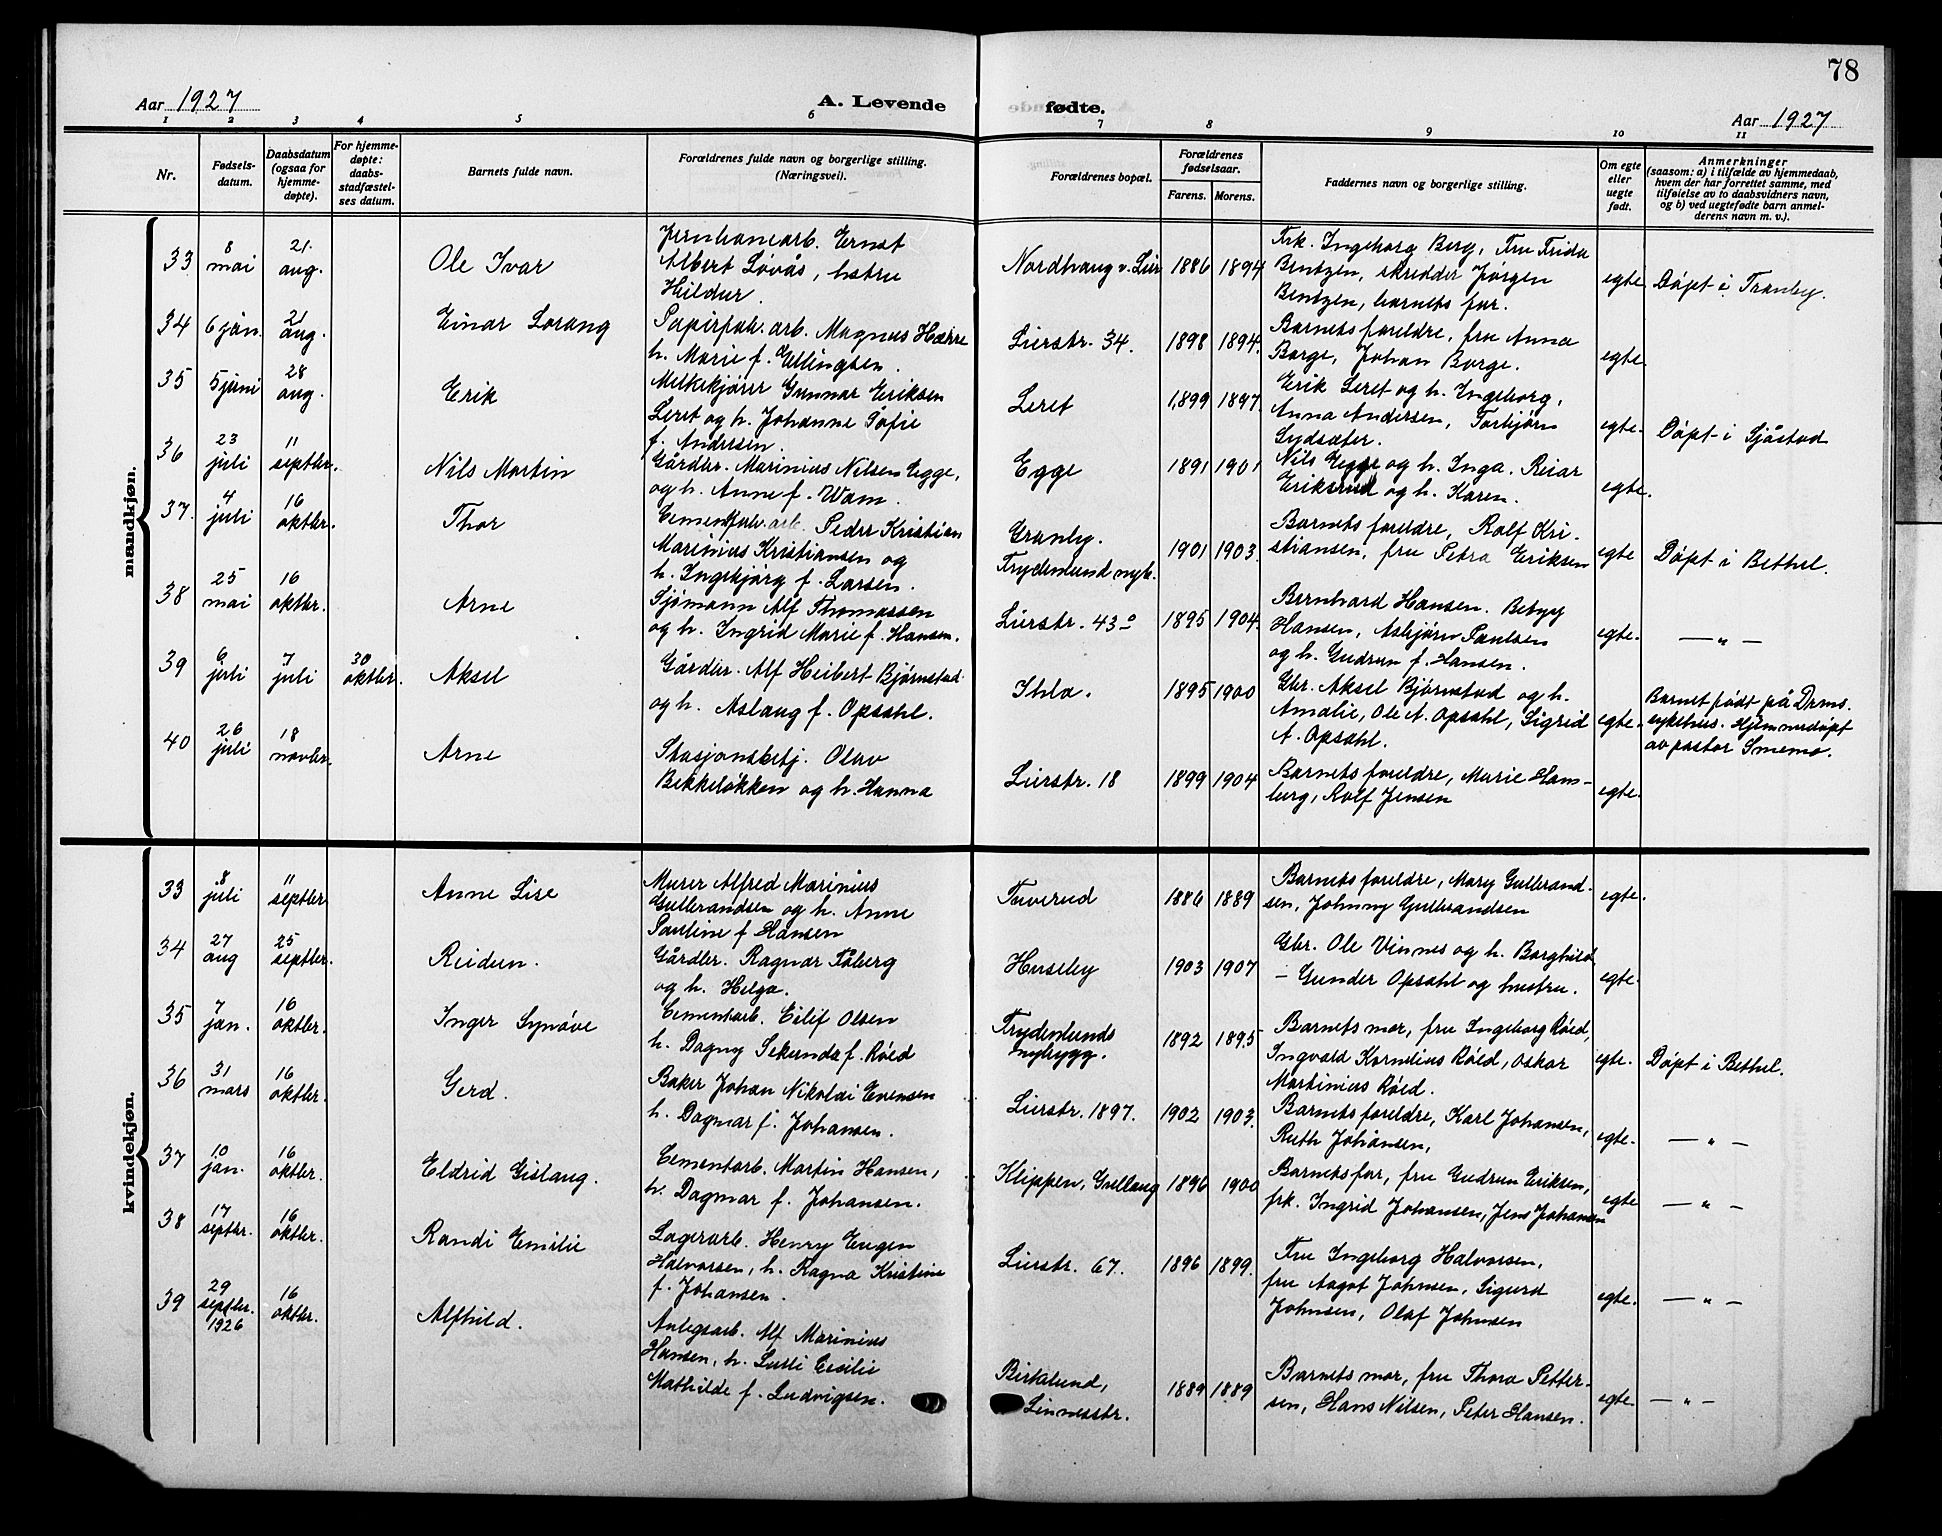 78
Aar 1927
A. Levende
fødte.
Aar 1927
1 2 3 4 5 6 7 8 9 10 11
Nr.
Fødsels-
datum.
Daabsdatum
(ogsaa for
hjemme-
døpte).
For hjemme-
døpte:
daabs-
stadfæstel-
ses datum.
Barnets fulde navn.
Forældrenes fulde navn og borgerlige stilling.
(Næringsvei).
Forældrenes bopæl.
Forældrenes
fødselsaar.
Farens. Morens.
Faddernes navn og borgerlige stilling.
Om egte
eller
uegte
født.
Anmerkninger
(saasom: a) i tilfælde av hjemmedaab,
hvem der har forrettet samme, med
tilføielse av to daabsvidners navn,
og b) ved uegtefødte barn anmel-
derens navn m. v.).
mandkjøn.
33
8
mai
21.
aug.
Ole Ivar
Jernbanearb. Ernst
Albert Løvås, hstru
Hildur.
Nordhaug v. Lier
1886 1894
Frk. Ingeborg Berg, Fru Frida
Bentzen, skredder Jørgen
Bentzen, barnets far.
egte
Døpt i Tranby.
34
6 jan.
21
aug.
Einar Lorang
Papirfab. arb. Magnus Hærre
h. Marie f. Ellingsen.
Lierstr. 34.
1898 1894.
Barnets foreldre, fru Anna
Borge, Johan Borge.
egte.
35
5 juni
28
aug.
Erik
Melkekjører Gunnar Eriksen
Leret og h. Johanne Sofie
f. Andersen.
Leret
1899 1897.
Erik Leret og h. Ingeborg,
Anna Andersen, Torbjørn
Lydsæter.
egte.
Døpt i Sjåstad
36
23
juli
11
septbr.
Nils Martin
Gårdbr. Marinius Nilsen Egge,
og h. Anne f. Wam.
Egge
1891 1901
Nils Egge og h. Inga. Reiar
Eriksrud og h. Karen.
egte.
37.
4
juli
16
oktbr.
Thor
Cementfab. arb. Peder Kristian
Marinius Kristiansen og
h. Ingebjørg f. Larsen.
Granby.
Frydenlund nyb.
1901 1903.
Barnets foreldre, Rolf Kri-
stiansen, fru Petra Eriksen
egte
Døpt i Bethel.
38
25
mai
16
oktbr.
Arne
Sjømann Alf Thomassen
og h. Ingrid Marie f. Hansen.
Lierstr. 43
1895 1904.
Bernhard Hansen. Betzy
Hansen, Asbjørn Paulsen
og h. Gudrun f. Hansen.
egte.
— " —
39
6
juli
7
juli
30
oktbr.
Aksel
Gårdbr. Alf Heibert Bjørnstad
og h. Aslaug f. Opsahl.
Ihla.
1895 1900
Gbr. Aksel Bjørnstad og h.
Amalie, Ole A. Opsahl, Sigrid
A. Opsahl.
egte.
Barnet født på Drms.
sykehus. Hjemmedøpt
av pastor Smemo.
40
26
juli
18
novbr.
Arne
Stasjonsbetj. Olav
Bekkeløkken og h. Hanna
Lierstr. 18
1899 1904
Barnets foreldre, Marie Ham-
burg, Rolf Jensen
egte.
kvindekjøn.
33
8
juli
11
septbr
Anne Lise
Murer Alfred Marinius
Gulbrandsen og h. Anne
Pauline f. Hansen
Tuverud
1886 1889
Barnets foreldre, Mary Gulbrand-
sen, Johnny Gulbrandsen
egte.
34
27
aug
25
septbr.
Reidun.
Gårdbr. Ragnar Fåberg
og h. Helga.
Huseby
1903 1907
Gbr. Ole Vinnes og h. Borghild
- Gunder Opsahl og hustru.
egte.
35
7
jan.
16
oktbr.
Inger Synøve
Cementarb. Eilif Olsen
h. Dagny Sekunda f. Røed
Frydenlunds
nybygg.
1892 1895
Barnets mor, fru Ingeborg Røed,
Ingvald Kornelius Røed, Oskar
Martinius Røed.
egte.
Døpt i Bethel.
36
31
mars
16
oktbr.
Gerd.
Baker Johan Nikolai Evensen
h. Dagmar f. Johansen.
Lierstr. 1897.
1902 1903.
Barnets foreldre, Karl Johansen,
Ruth Johansen,
egte.
— " —
37
10
jan.
16
oktbr.
Eldrid Gislaug.
Cementarb. Martin Hansen,
h. Dagmar f. Johansen.
Klippen, Gullaug
1896 1900
Barnets far, fru Gudrun Eriksen,
frk. Ingrid Johansen, Jens Johansen
egte
— " —
38
17
septbr.
16
oktbr.
Randi Emilie
Lagerarb. Henry Eugen
Halvorsen, h. Ragna Kristine
f. Johansen.
Lierstr. 67.
1896 1899.
Fru Ingeborg Halvorsen,
fru Aagot Johnsen, Sigurd
Johnsen, Olaf Johnsen
egte.
— " —
39
29
septbr.
1926
16
oktbr.
Alfhild.
Anlegsarb. Alf Marinius
Hansen, h. Lulli Cecilie
Mathilde f. Ludvigsen.
Birkelund,
Linnesstr.
1889 1889
Barnets mor, fru Thora Petter-
sen, Hans Nilsen, Peter Hansen.
egte.
— " —